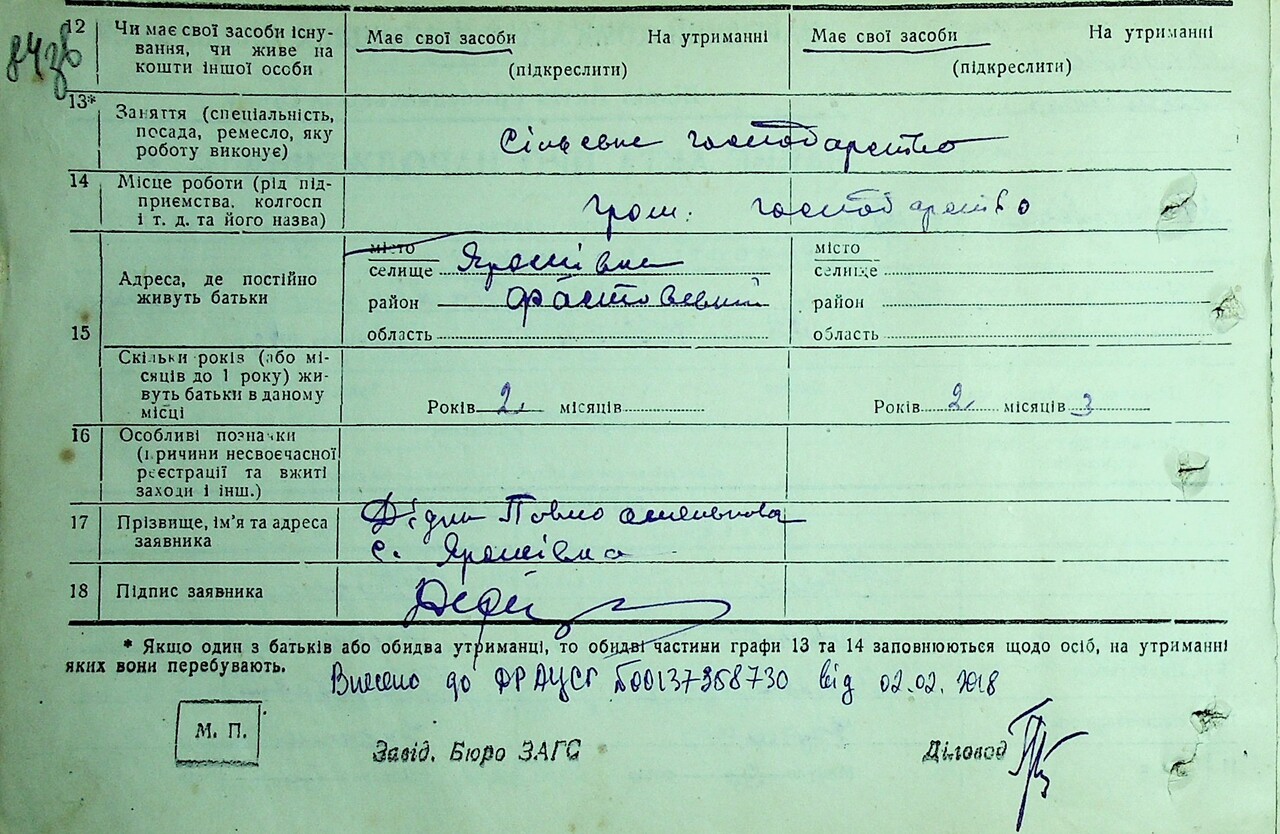 12 Чи має свої засоби існу-
вання, чи живе на
кошти іншої особи
Має свої засоби На утриманні
(підкреслити)
Має свої засоби На утриманні
(підкреслити)
13* Заняття (спеціальність,
посада, ремесло, яку
роботу виконує)
Сільське господарство
14 Місце роботи (рід під-
приємства, колгосп
і т. д. та його назва)
Гром. господарство
15 Адреса, де постійно
живуть батьки
місто
селище Ярошівка
район Фастовський
область
місто
селище
район
область
Скільки років (або мі-
сяців до 1 року) жи-
вуть батьки в даному
місці
Років 2 місяців
Років 2 місяців 3
16 Особливі позначки
(причини несвоєчасної
реєстрації та вжиті
заходи і інш.)
17 Прізвище, ім’я та адреса
заявника
с. Ярошівка
18 Підпис заявника
* Якщо один з батьків або обидва утриманці, то обидві частини графи 13 та 14 заповнюються щодо осіб, на утриманні
яких вони перебувають.
Внесено до ДРАЦСГ 00137358730 від 02.02.2018
М. П.
Завід. Бюро ЗАГС
Діловод